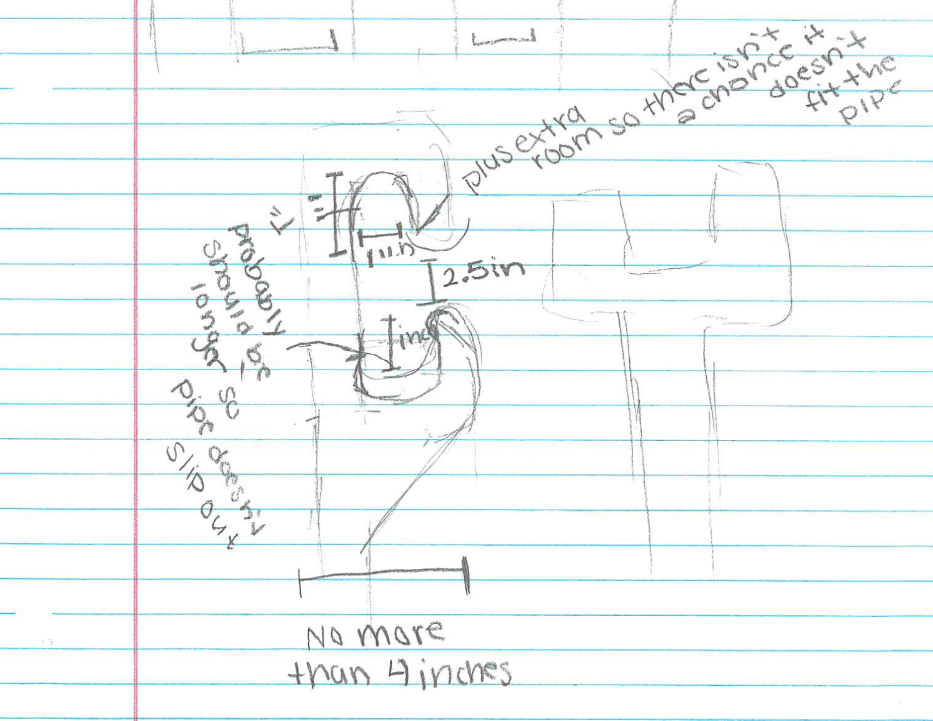 plus extra
room so there isn't
a chance it
doesn't
fit the
pipe
1"
1"in
2.5in
inch
probably
should be
longer so
pipe doesn't
slip out
No more
than 4 inches